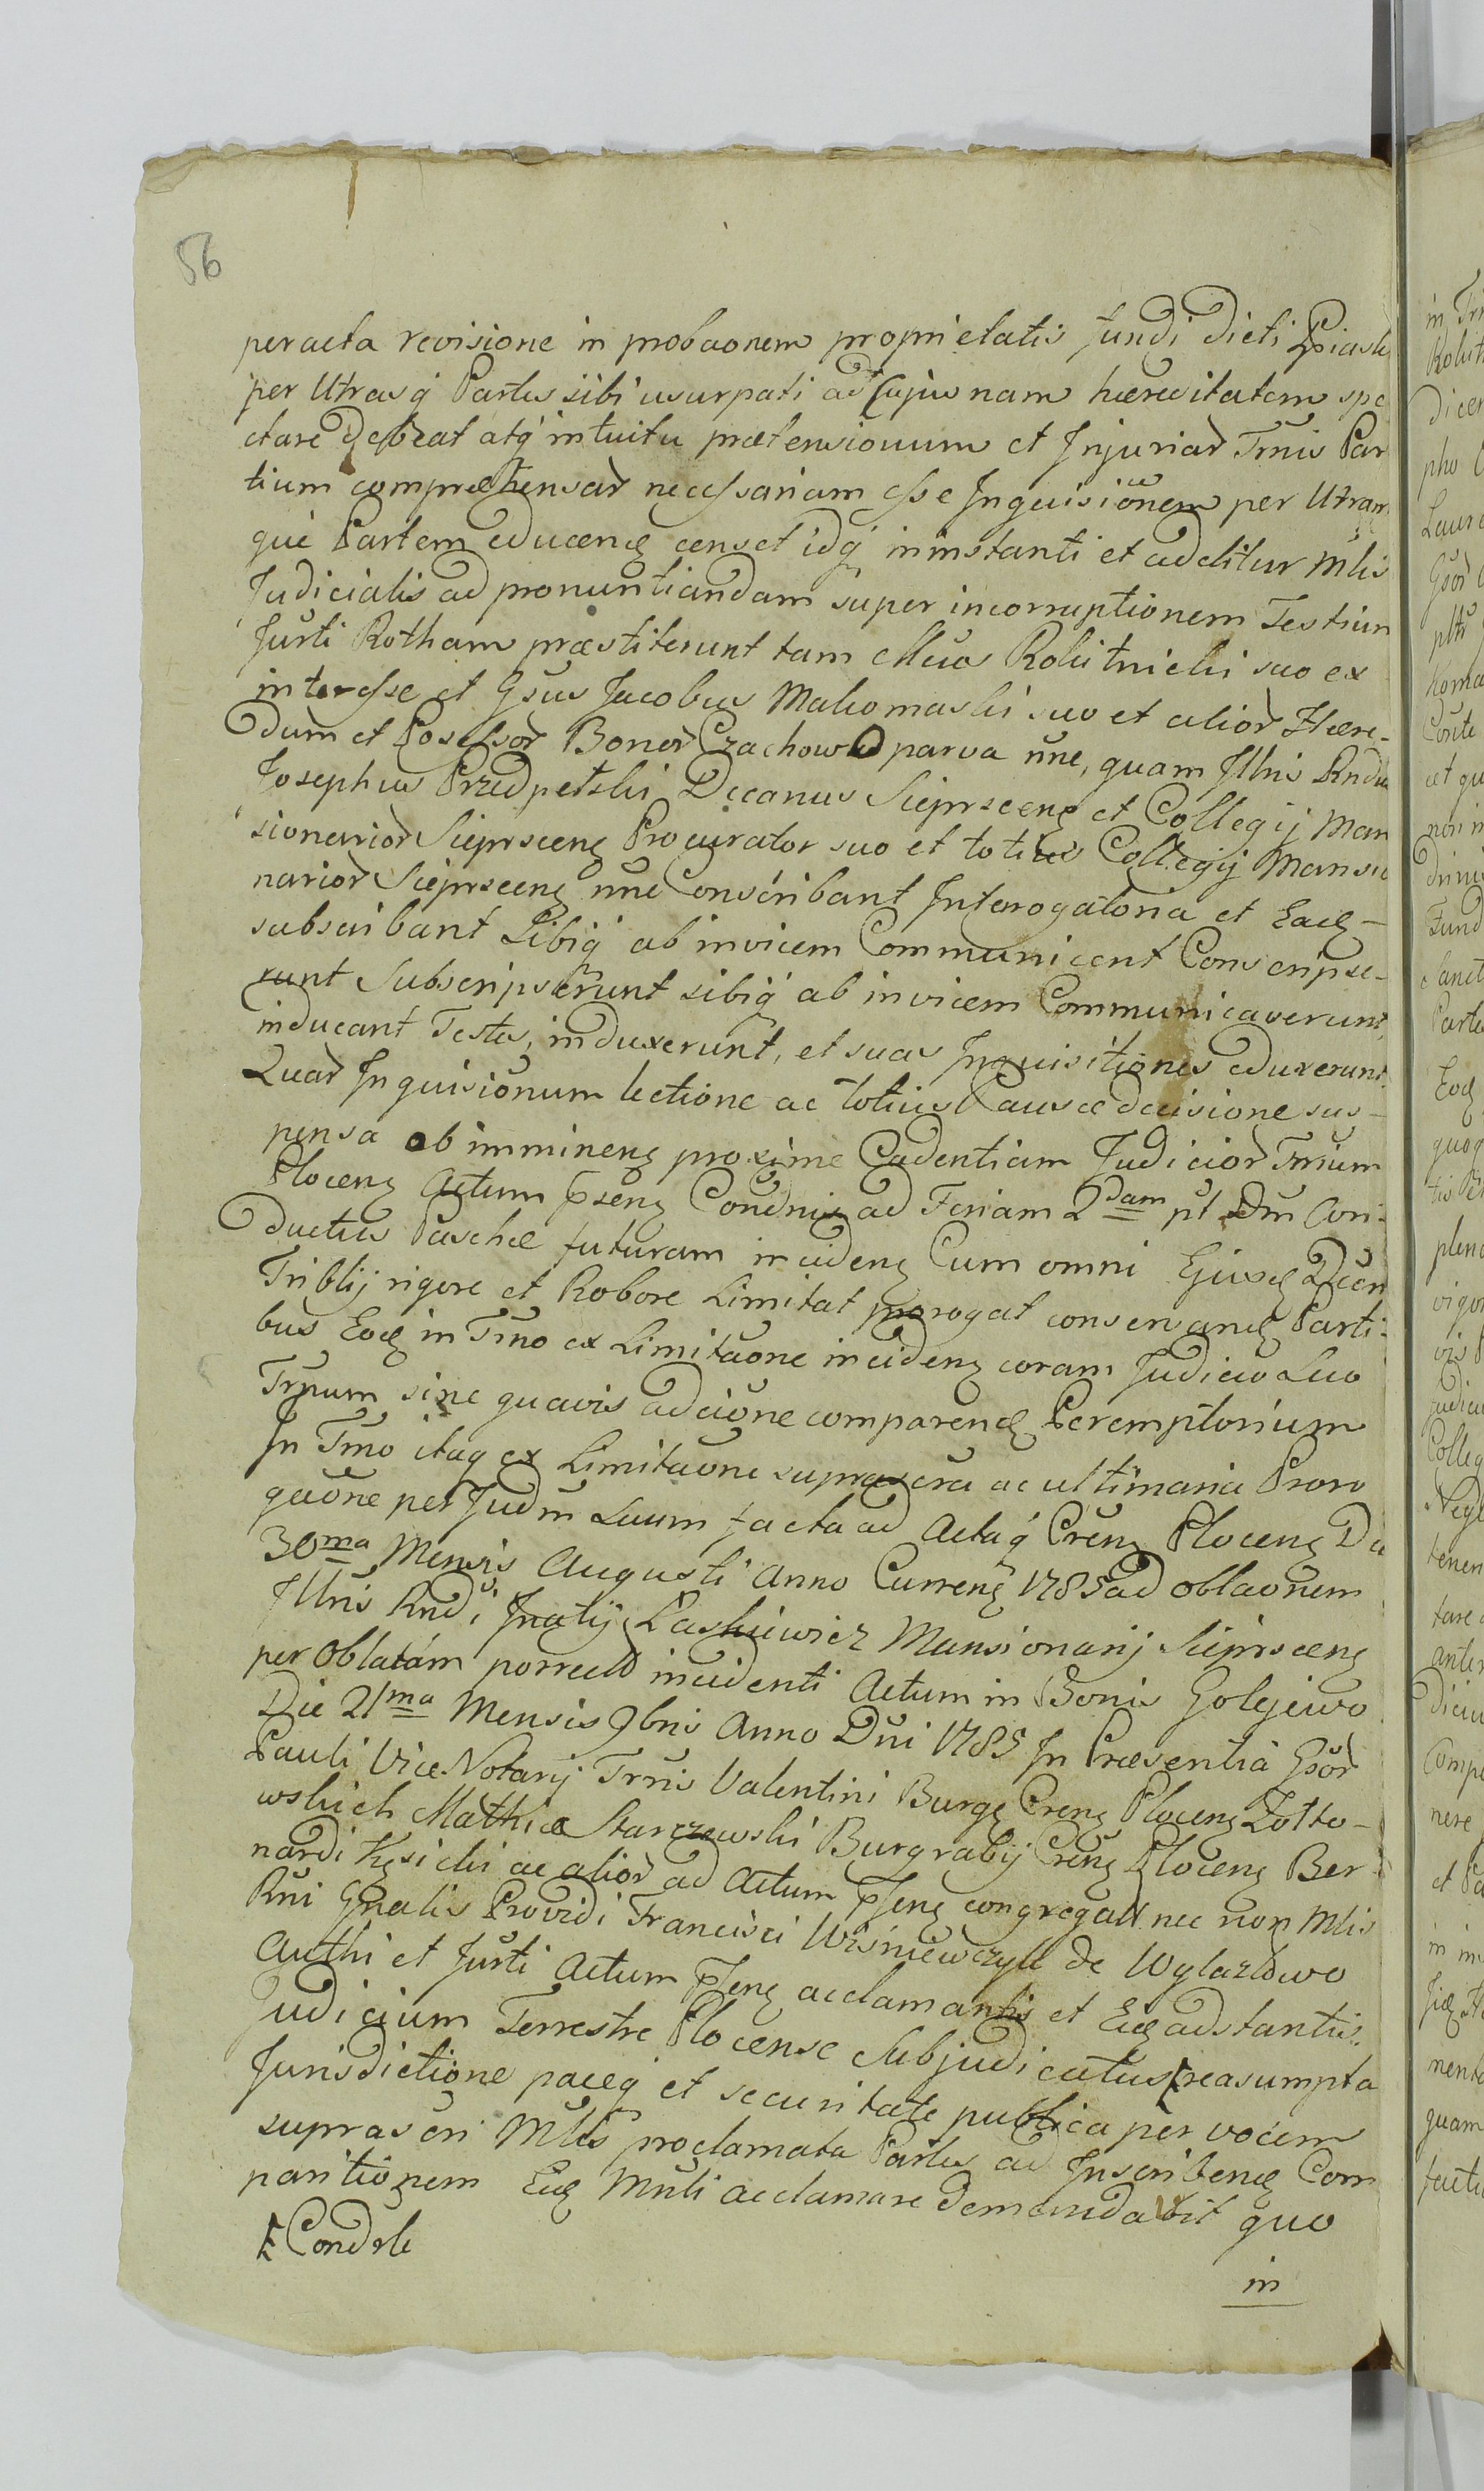 56
peracta revisione in probaonem proprietatis fundi dicti Piaski
per Utrasq́ Partes sibi usurpati ad Cujus nam hæreditatem spe
ctare debeat atq́ intuitu prætensionum et Injuriar Trnis Par
tium compræhensar necessariam esse Inquisiōnem per Utram
que Partem educenḍ censet idq́ in instanti et additur Mlis
Judicialis ad pronuntiandam super incorruptionem Testium
Jurti Rotham præstiterunt tam Mcus Rokitnicki suo ex
interesse et Gsus Jacobus Makomaski suo et alior Hære-
dum et Possessor Bonor Czachowo parva nne, quam Illris Rndus
Josephus Przedpełski Decanus Sieprscenẓ et Collegij Man
sionarior Sieprscenẓ Procurator suo et totius Collegij Mansio
narior Sieprscenẓ nne Conscribant Interogatoria et Eadẓ-
subscribant Sibiq́ ab invicem Communicent Conscripse-
runt Subscripserunt sibiq́ ab invicem Communicaverunt,
inducant Testes, induxerunt, et suas Inquisitiones eduxerunt.
Quar Inquisiōnum lectione ac totius Causæ decisione sus-
pensa ob imminenẓ proxime Cadentiam Judicior Trrium
Plocenẓ Actum Psenẓ Condnis ad Feriam 2dam pt Dm Con-
ductus Paschæ futuram incidenẓ Cum omni Ejusdẓ Dcen
Triblij rigore et Robore Limitat prorogat conservandẓ Parti-
bus Eodẓ in Tmo ex Limitaōne incidenẓ coram Judicio Suo
Trrum sine quavis adciōne comparendẓ Peremptorium
In Tmo itaq ex Limitaōne suprascra ac ultimaria Proro
gaōne per Judm Suum facta ad Actaq́ Crenẓ Plocenẓ Die
30ma Mensis Augusti Anno Currenẓ 1785 ad oblaonem
Illris Rndi Ignatij Laskiewicz Mansionarij Sieprscenẓ
per Oblatam porrecto incidenti Actum in Bonis Golejewo
Die 21ma Mensis 9bris Anno Dni 1785 In Præsentia Gsor
Pauli Vice Notarij Trris Valentini Burgẓ Crenẓ Plocenẓ Zołto-
wskich Mathiæ Starczewski Burgrabij Crenẓ Plocenẓ Ber-
nardi Kęsicki ac alior ad Actum Psenẓ congregatt nec non Mlis
Rni Gnalis Providi Francisci Wiśniewczyk de Wylazłowo
Authi et Jurti Actum Psenẓ acclamantis et Eidẓ adstantis.
Judicium Terrestre Plocense Subjudicatus ⁅reasumpta
Jurisdictione paceq́ et securitate publica per vocem
suprascri Mlis proclamata Partes ad Inscribendẓ Com
paritionem Eidẓ Mnli acclamare demandavit quo
⁅ Condrle
in